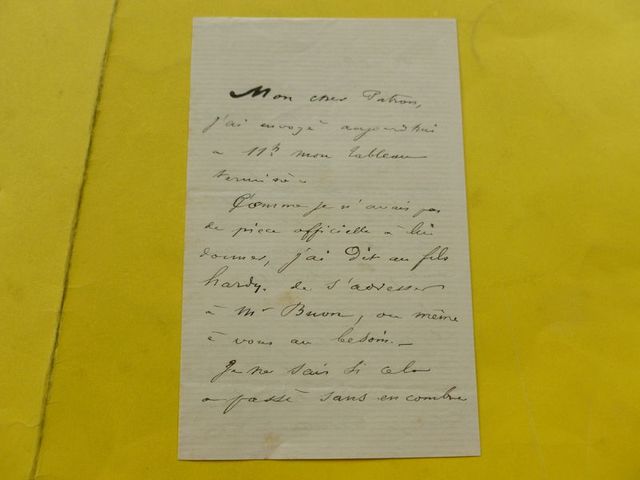 Mon cher Patron,
j'ai envoyé aujourd'hui
a 11h mon tableau
terminé.
Comme je n'avais pas
de piece officielle à lui
donner, j'ai dit au fils
hardy. de s'adresser
à Mr Buon, ou même
à vous au besoin. _
Je ne sais si cela
a passé sans encombre